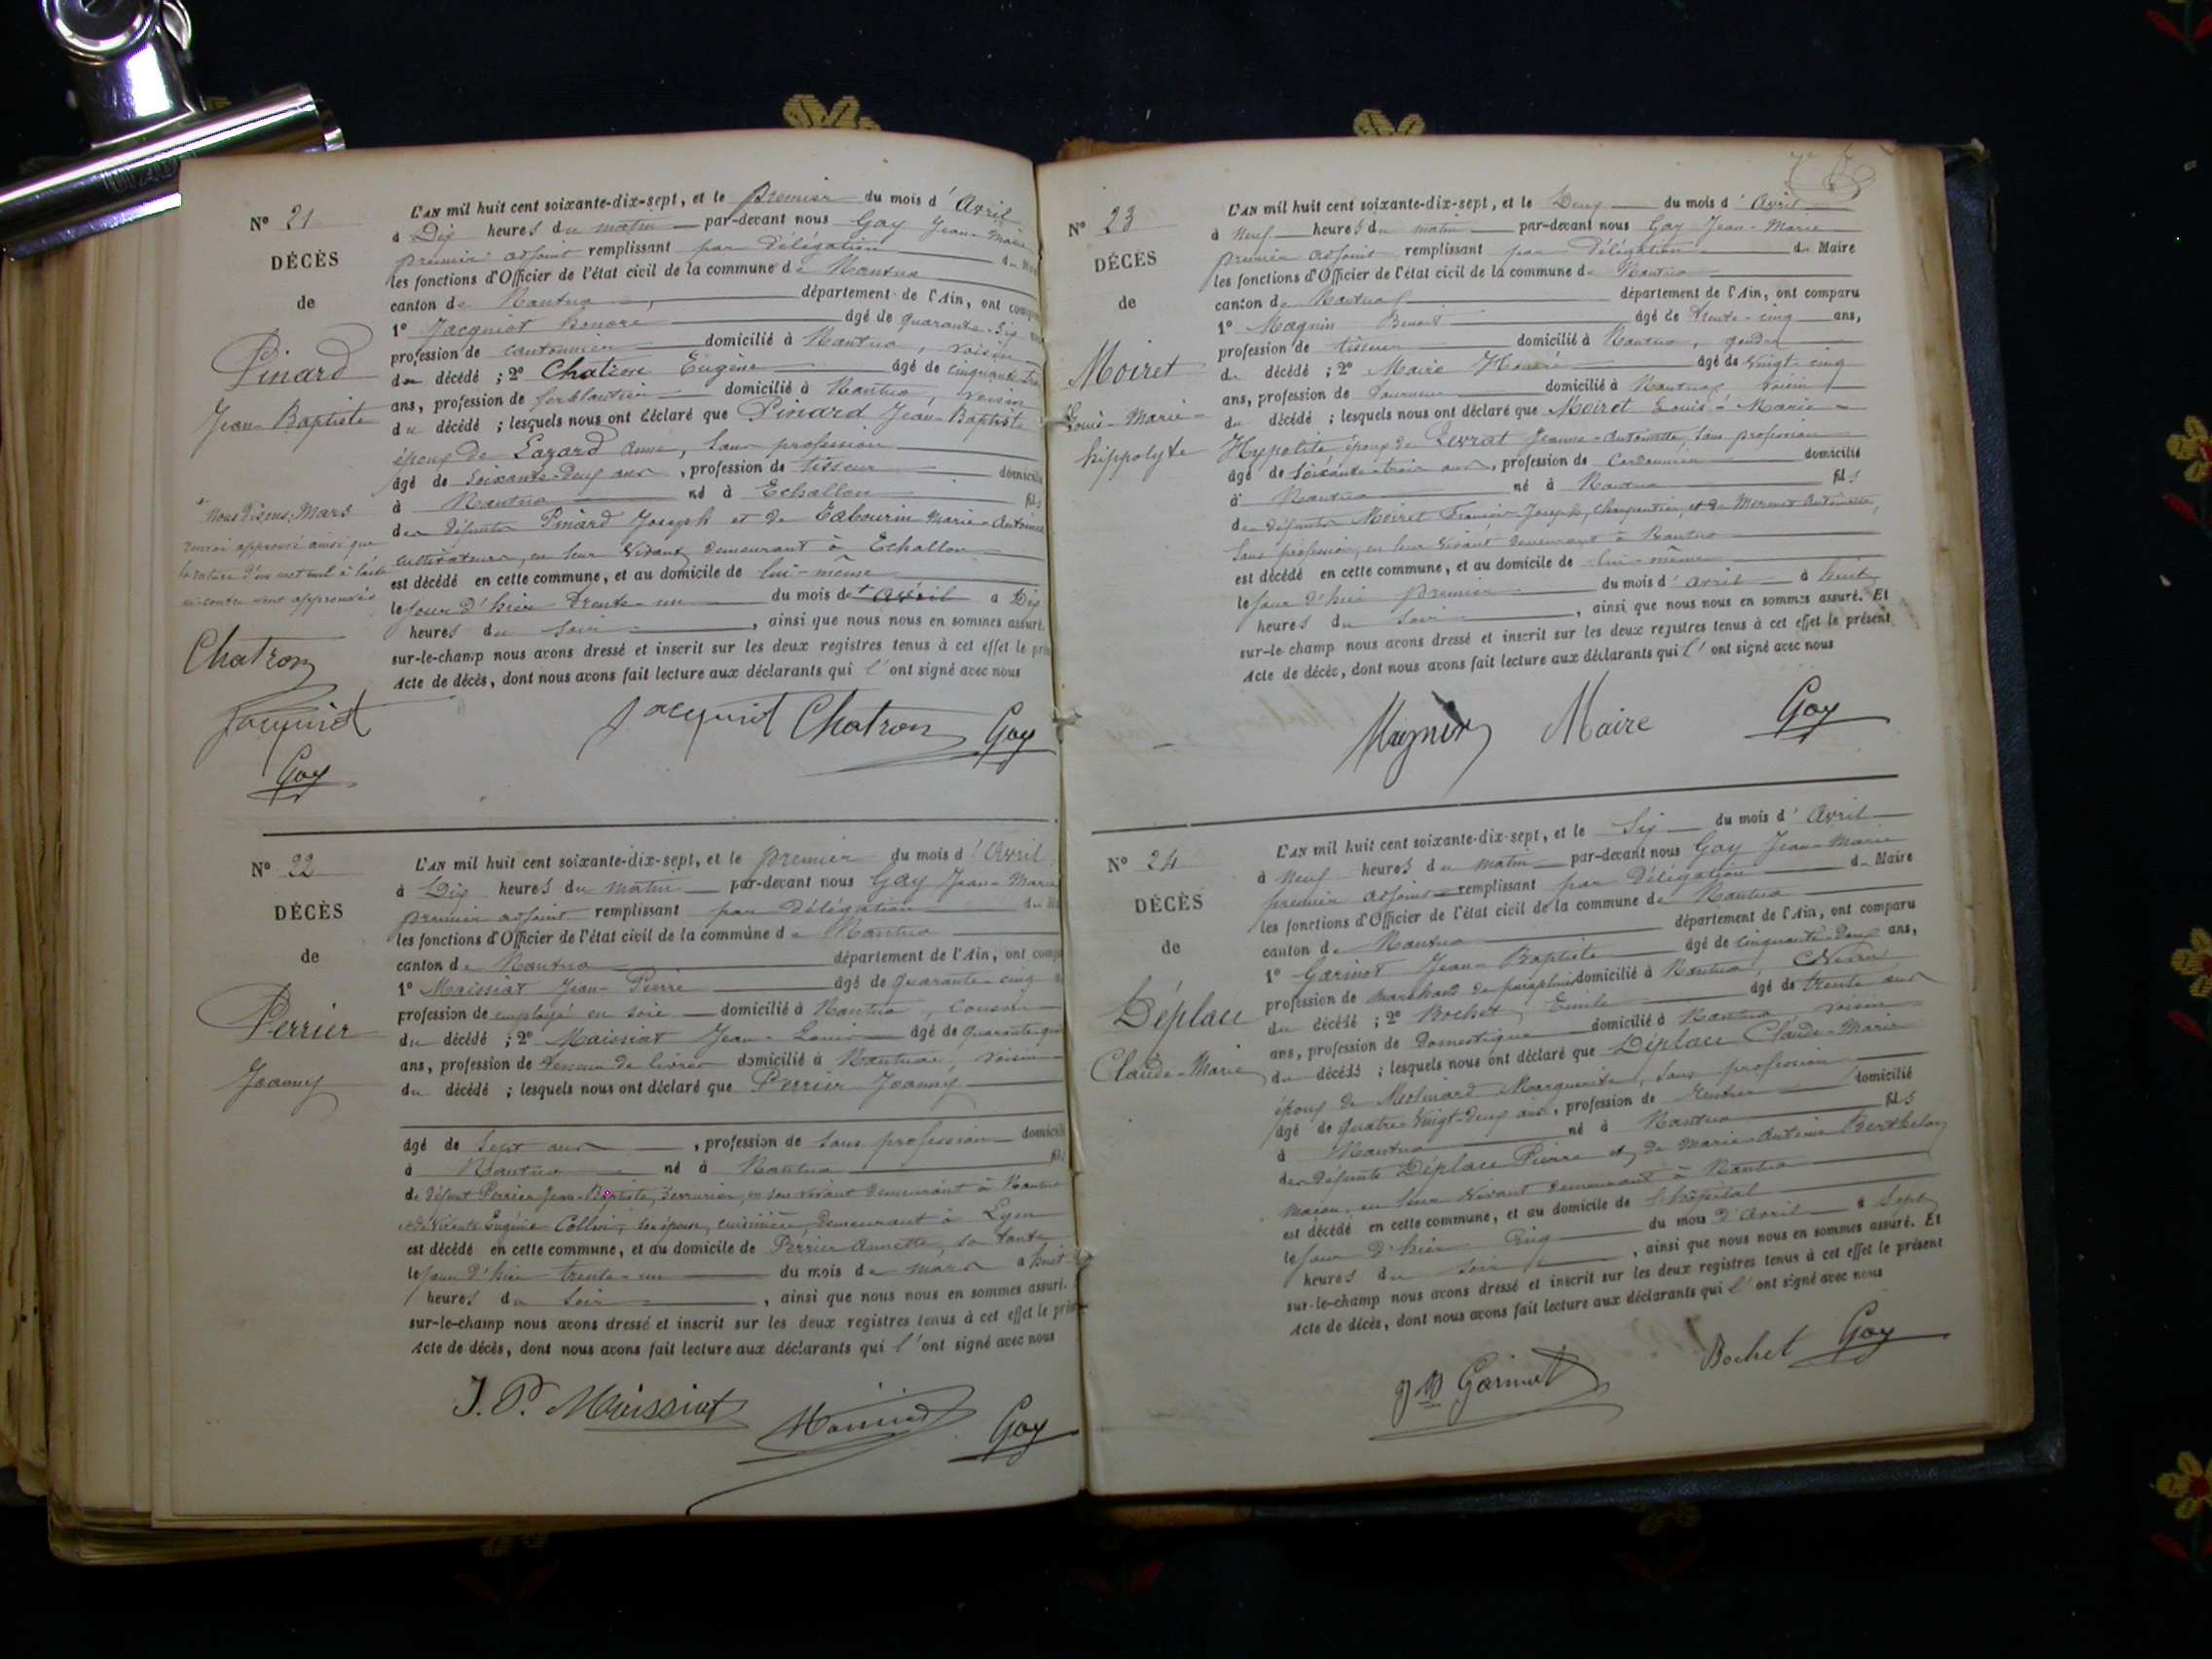 N° 21
DÉCÈS
de
Pinard
Jean-Baptiste
L'AN mil huit cent soixante-dix-sept, et le premier du mois d'Avril
à Dix heures du matin par-devant nous Gay Jean-Marie
premier adjoint remplissant par délégation du
les fonctions d'Officier de l'état civil de la commune de Nantua
canton de Nantua, département de l'Ain, ont
1° Jacquiot honoré âgé de quarante-six
profession de cantonnier domicilié à Nantua, voisin
du décédé ; 2° Chatron Eugène âgé de cinquante
ans, profession de ferblantier domicilié à Nantua, voisin
du décédé ; lesquels nous ont déclaré que Pinard Jean-Baptiste
époux de Lazard Anne, sans profession
âgé de soixante-deux ans, profession de tisseur
à Nantua né à Echallon fils
des défunts Pinard Joseph et de Tabourin Marie-Antoinette
cultivateurs, en leur vivant demeurant à Echallon
est décédé en cette commune, et au domicile de lui-même
le jour d'hier trente-un du mois de avril à Dix
heures du soir, ainsi que nous nous en sommes assuré.
sur-le-champ nous avons dressé et inscrit sur les deux registres tenus à cet effet le
Acte de décès, dont nous avons fait lecture aux déclarants qui l'ont signé avec nous
Nous disons: Mars
renvoi approuvé ainsi que
la rature d'un mot nul à l'acte
ci-contre sont approuvés
Chatron
Jacquiot
Gay
Jacquiot Chatron Gay
N° 22
DÉCÈS
de
Perrier
Joanny
L'AN mil huit cent soixante-dix-sept, et le premier du mois d'Avril
à Dix heures du matin par-devant nous Gay Jean-Marie
premier adjoint remplissant par délégation du
les fonctions d'Officier de l'état civil de la commune de Nantua
canton de Nantua département de l'Ain, ont
1° Maissiat Jean-Pierre âgé de quarante-cinq
profession de employé en soie domicilié à Nantua, cousin
du décédé ; 2° Maissiat Jean-Louis âgé de quarante
ans, profession de teneur de livres domicilié à Nantua, voisin
du décédé ; lesquels nous ont déclaré que Perrier Joanny
âgé de sept ans, profession de sans profession
à Nantua né à Nantua fils
de défunt Perrier Jean-Baptiste, serrurier, en son vivant demeurant à Nantua
et de vivante Eugénie Collin, son épouse, cuisinière, demeurant à Lyon
est décédé en cette commune, et au domicile de Perrier Annette, sa tante
le jour d'hier trente-un du mois de mars à huit
heures du soir, ainsi que nous nous en sommes assuré.
sur-le-champ nous avons dressé et inscrit sur les deux registres tenus à cet effet le
Acte de décès, dont nous avons fait lecture aux déclarants qui l'ont signé avec nous
J. P. Maissiat Gay
N° 23
DÉCÈS
de
Moiret
Louis-Marie-
hippolyte
L'AN mil huit cent soixante-dix-sept, et le Deux du mois d'Avril
à Neuf heures du matin par-devant nous Gay Jean-Marie
premier adjoint remplissant par délégation du Maire
les fonctions d'Officier de l'état civil de la commune de Nantua
canton de Nantua département de l'Ain, ont comparu
1° Magnin Benoit âgé de trente-cinq ans,
profession de tisseur domicilié à Nantua, gendre
du décédé ; 2° Maire Honoré âgé de vingt-cinq
ans, profession de tourneur domicilié à Nantua, voisin
du décédé ; lesquels nous ont déclaré que Moiret Louis-Marie-
Hypolite époux de Levrat Jeanne-Antoinette, sans profession
âgé de soixante-trois ans, profession de cordonnier domicilié
à Nantua né à Nantua fils
des défunts Moiret François-Joseph, charpentier, et de Mermet Antoinette,
sans profession, en leur vivant demeurant à Nantua
est décédé en cette commune, et au domicile de lui-même
le jour d'hier premier du mois d'avril à huit
heures du soir, ainsi que nous nous en sommes assuré. Et
sur-le-champ nous avons dressé et inscrit sur les deux registres tenus à cet effet le présent
Acte de décès, dont nous avons fait lecture aux déclarants qui l'ont signé avec nous
Magnin Maire Gay
N° 24
DÉCÈS
de
Déplace
Claude-Marie
L'AN mil huit cent soixante-dix-sept, et le Six du mois d'Avril
à Neuf heures du matin par-devant nous Gay Jean-Marie
premier adjoint remplissant par délégation du Maire
les fonctions d'Officier de l'état civil de la commune de Nantua
canton de Nantua département de l'Ain, ont comparu
1° Garinot Jean-Baptiste âgé de cinquante-deux ans,
profession de marchand de parapluies domicilié à Nantua, Neveu
du décédé ; 2° Bochet Emile âgé de trente ans
ans, profession de Domestique domicilié à Nantua voisin
du décédé ; lesquels nous ont déclaré que Déplace Claude-Marie
époux de Molinard Marguerite, sans profession
âgé de quatre-vingt-deux ans, profession de rentier domicilié
à Nantua né à Nantua fils
des défunts Déplace Pierre et de Marie-Antoine Berthelon
maçon, en leur vivant demeurant à Nantua
est décédé en cette commune, et au domicile de l'hôpital
le jour d'hier Cinq du mois d'avril à sept
heures du soir, ainsi que nous nous en sommes assuré. Et
sur-le-champ nous avons dressé et inscrit sur les deux registres tenus à cet effet le présent
Acte de décès, dont nous avons fait lecture aux déclarants qui l'ont signé avec nous
Garinot Bochet Gay